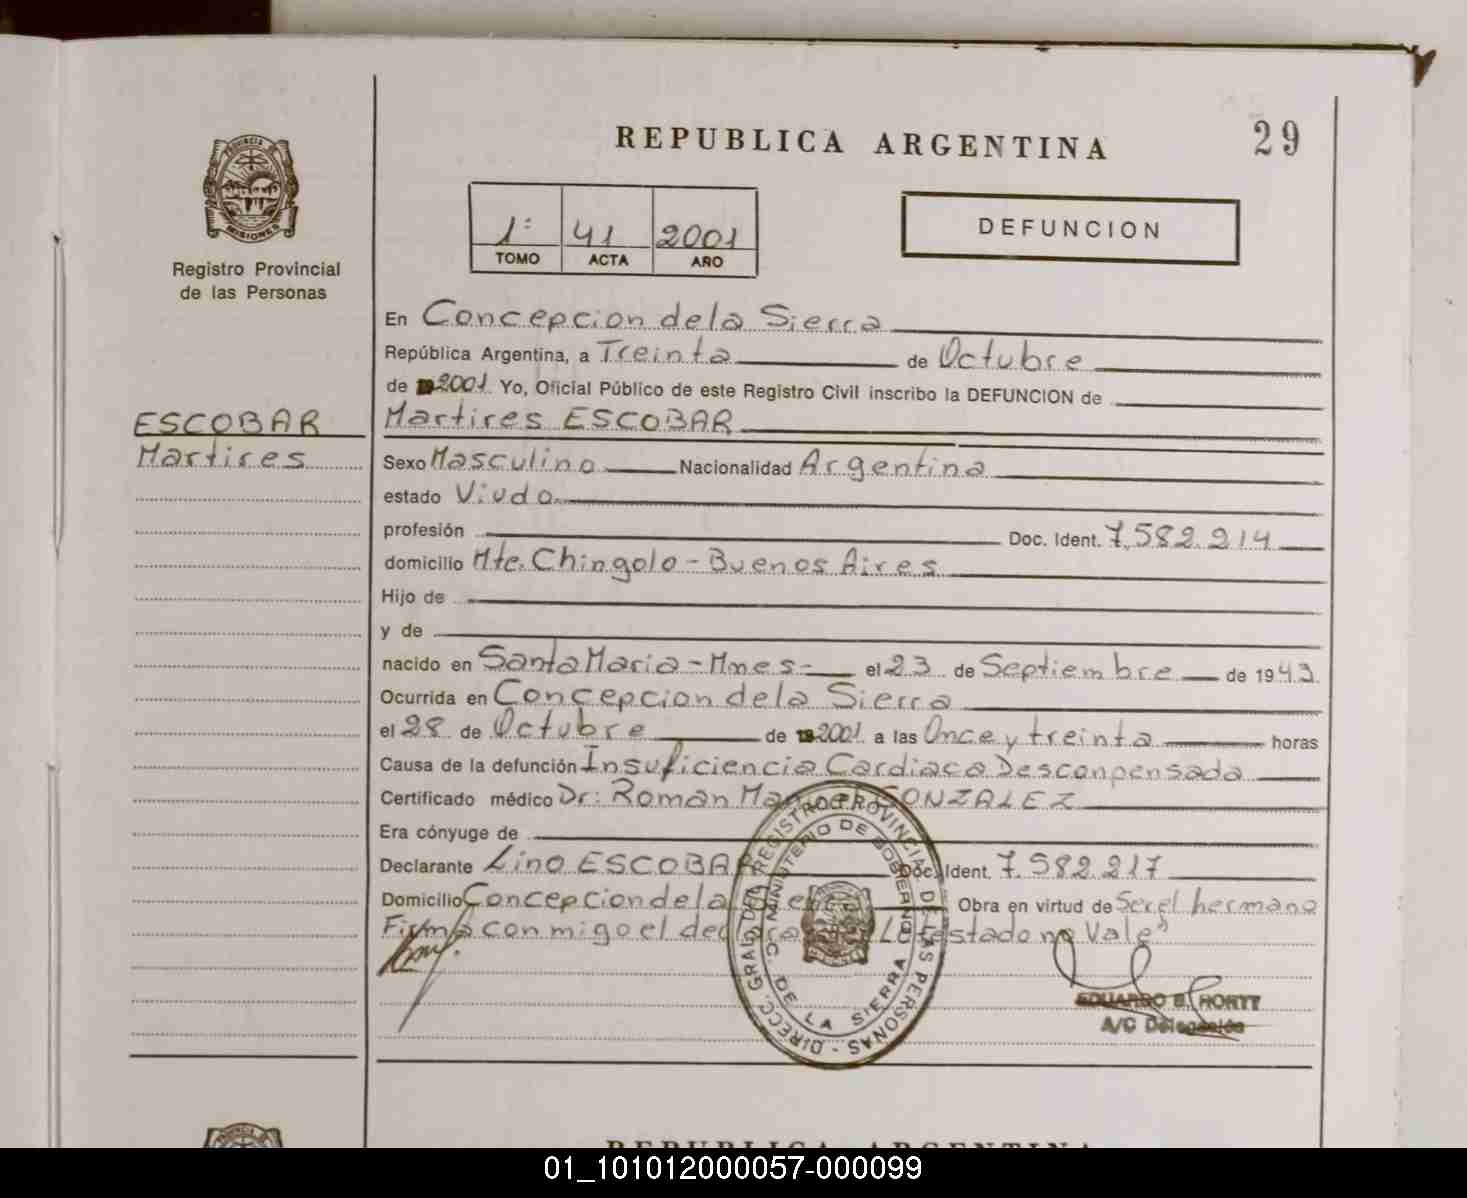 29
REPUBLICA ARGENTINA
PROVINCIA DE
MISIONES
Registro Provincial
de las Personas
1º 41 2001
TOMO ACTA AÑO
DEFUNCION
En Concepcion de la Sierra
República Argentina, a Treinta de Octubre
de 2001. Yo, Oficial Público de este Registro Civil inscribo la DEFUNCION de
ESCOBAR
Martires
Martires ESCOBAR
Sexo Masculino Nacionalidad Argentina
estado Viudo
profesión Doc. Ident. 7.582.214
domicilio Mte. Chingolo - Buenos Aires
Hijo de
y de
nacido en Santa Maria - Mnes - el 23 de Septiembre de 1943
Ocurrida en Concepcion de la Sierra
el 28 de Octubre de 2001 a las Once y treinta horas
Causa de la defunción Insuficiencia Cardiaca Desconpensada
Certificado médico Dr: Roman Manuel GONZALEZ
Era cónyuge de
Declarante Lino ESCOBAR Doc. Ident. 7.582.217
Domicilio Concepcion de la Sierra Obra en virtud de Ser el hermano
Firma con migo el declarante Lo testado no Vale"
DIRECC. GRAL. DEL REGISTRO PROVINCIAL DE LAS PERSONAS
MINISTERIO DE GOBIERNO
C. DE LA SIERRA
EDUARDO E. HORTT
A/C Delegación
REPUBLICA ARGENTINA
01_101012000057-000099